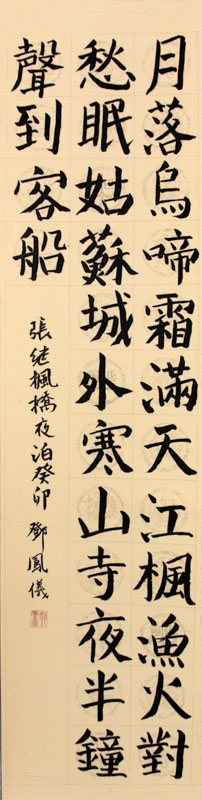 月落烏啼霜滿天江楓漁火對
愁眠姑蘇城外寒山寺夜半鐘
聲到客船
張继楓橋夜泊癸卯 鄧鳳儀